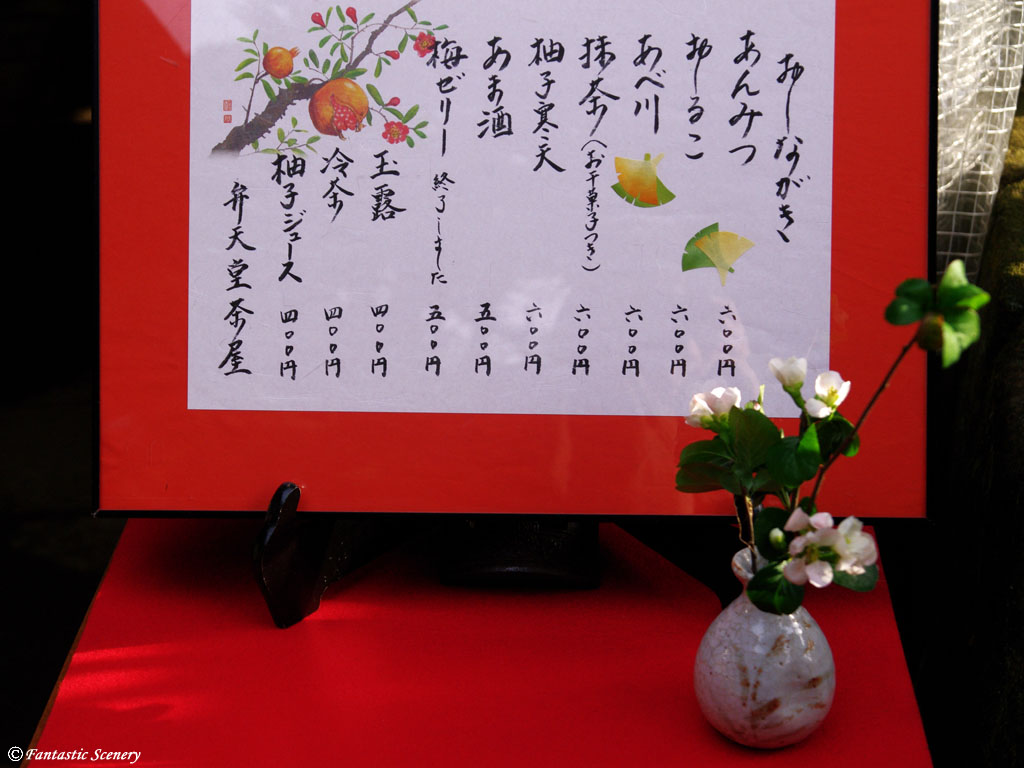 おしながき
あんみつ 六〇〇円
おしるこ 六〇〇円
あべ川 六〇〇円
抹茶(お干菓子つき) 六〇〇円
柚子寒天 六〇〇円
あま酒 五〇〇円
梅ゼリー 終了しました 五〇〇円
玉露 四〇〇円
冷茶 四〇〇円
柚子ジュース 四〇〇円
弁天堂茶屋
© Fantastic Scenery